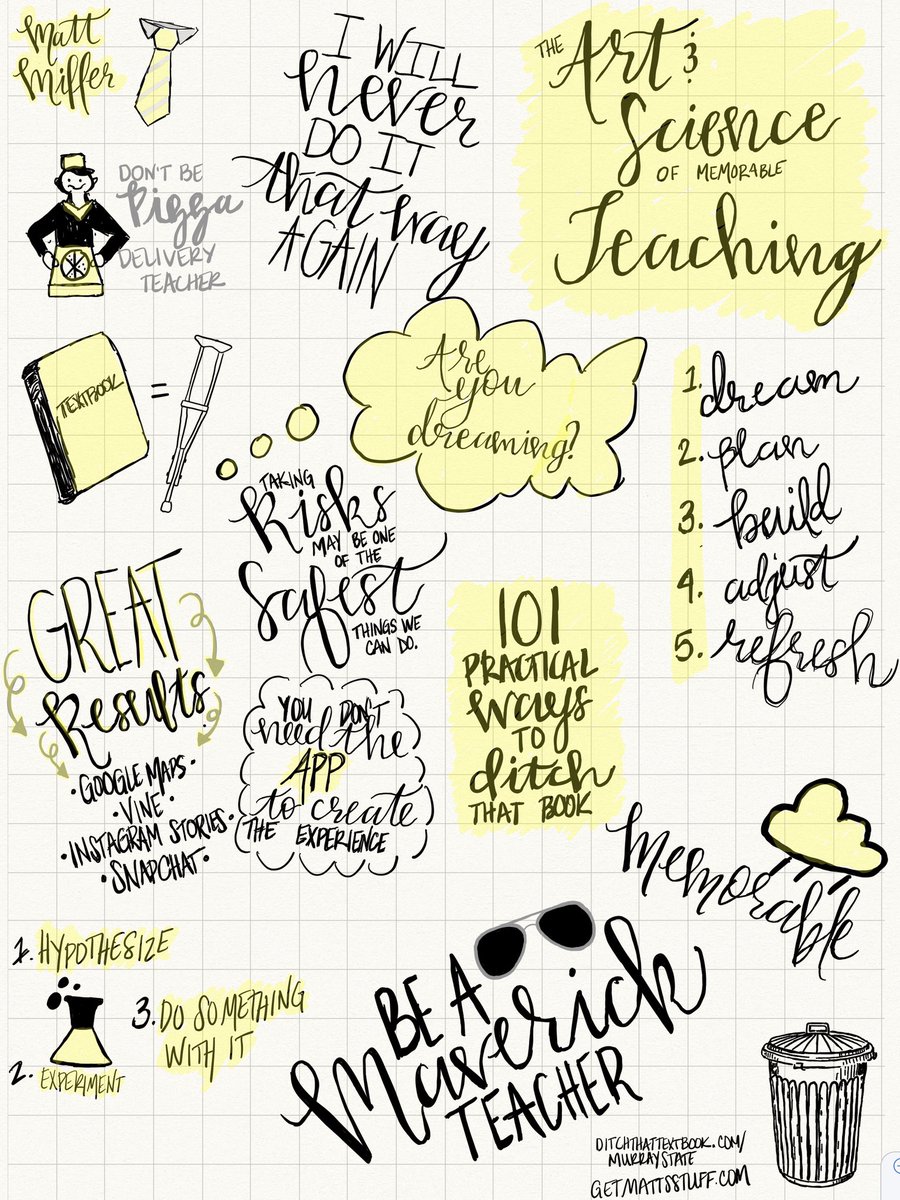 Matt
Miller
I WILL
never
DO IT
that way
AGAIN
THE Art &
Science
OF MEMORABLE
Teaching
DON'T BE
Pizza
DELIVERY
TEACHER
TEXTBOOK
=
Are
you
dreaming?
1. dream
2. plan
3. build
4. adjust
5. refresh
TAKING
Risks
MAY BE ONE
OF THE
Safest
THINGS WE
CAN DO.
GREAT
Results
• GOOGLE MAPS •
• VINE •
• INSTAGRAM STORIES •
• SNAPCHAT •
YOU DON'T
need the
APP
to create
THE EXPERIENCE
101
PRACTICAL
ways
TO
ditch
THAT BOOK
Memorable
1. HYPOTHESIZE
2. EXPERIMENT
3. DO SOMETHING
WITH IT
BE A
Maverick
TEACHER
DITCHTHATTEXTBOOK.COM/
MURRAYSTATE
GETMATTSSTUFF.COM